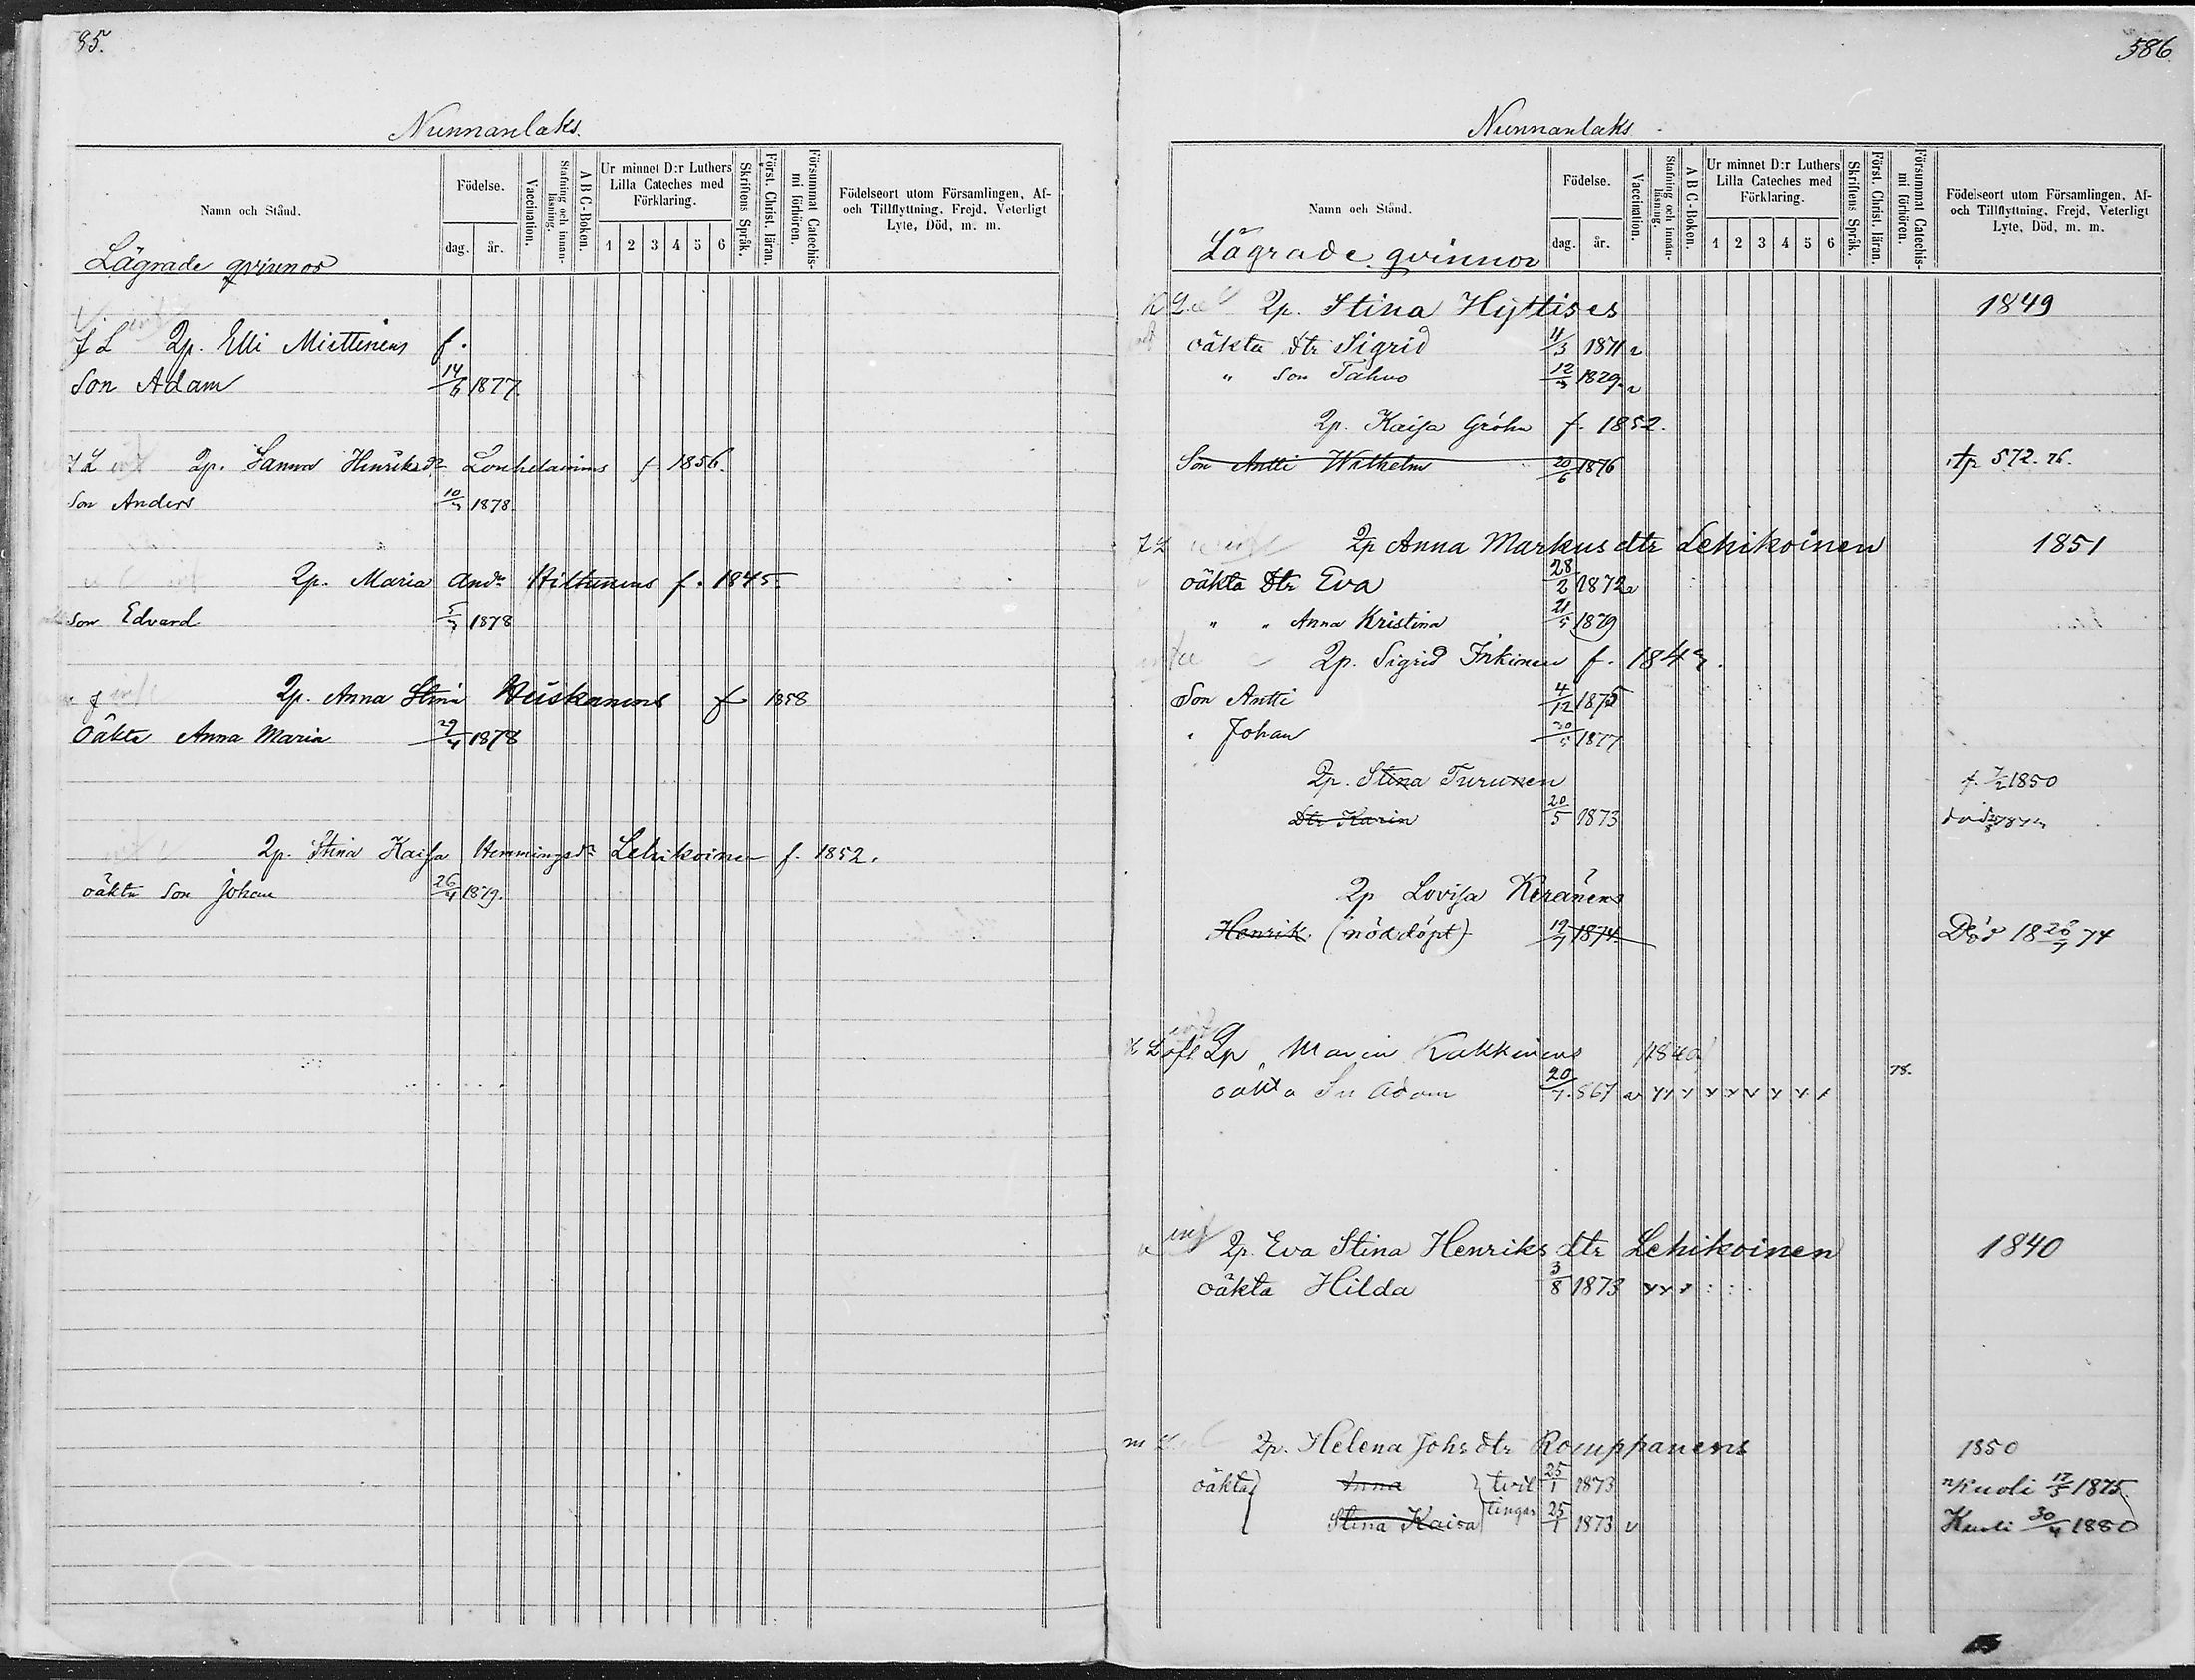 85.
Nunnanlaks.
Namn och Stånd.
Födelse.
dag.
år.
Vaccination.
Stafning och innan-läsning.
A B C-Boken.
Ur minnet D:r Luthers Lilla Cateches med Förklaring.
1 2 3 4 5 6
Skriftens Språk.
Först. Christ. läran.
Försummat Catechis-mi förhören.
Födelseort utom Församlingen, Af- och Tillflyttning, Frejd, Veterligt Lyte, Död, m. m.
Lägrade qvinnor
Qp. Elli Miettinens f.
Son Adam 14/6 1877.
Qp. Sanna Henriksdr f. 1856.
Son Anders 10/7 1878
Qp. Maria Andr Hiltunens f. 1845.
Son Edvard 5/7 1878
Qp. Anna Stina Heiskanens f 1858
Oäkta Anna Maria 29/4 1878
Qp. Stina Kaisa Hemmingsdr Lehikoinen f. 1852.
oäkta Son Johan 26/4 1879.
586
Nunnanlaks
Namn och Stånd.
Födelse.
dag.
år.
Vaccination.
Stafning och innan-läsning.
A B C-Boken.
Ur minnet D:r Luthers Lilla Cateches med Förklaring.
1 2 3 4 5 6
Skriftens Språk.
Först. Christ. läran.
Försummat Catechis-mi förhören.
Födelseort utom Församlingen, Af- och Tillflyttning, Frejd, Veterligt Lyte, Död, m. m.
Lägrade qvinnor
Qp. Stina Hyttises 1849
oäkta dtr Sigrid 11/3 1871 v
" Son Tahvo 12/3 1879. v
Qp. Kaisa Gröhn f. 1852.
Son Antti Wilhelm 20/6 1876 572. 76.
Qp Anna Markus dtr Lehikoinen 1851
oäkta Dtr Eva 28/2 1872 v
" " Anna Kristina 21/5 1879
Qp. Sigrid Inkinen f. 1847.
Son Antti 4/12 1875
" Johan 30/5 1877
Qp. Stina Turunen f. 7/2 1850
Dtr Karin 20/5 1873
Qp Lovisa Keränens
Henrik. (nöddöpt) 19/7 1874 Död 18 20/7 74
Qp Maria Kakkinens 1840
78.
oäkta Sn Adam 20/7 867
Qp. Eva Stina Henriks dtr Lehikoinen 1840
oäkta Hilda 3/8 1873
Qp. Helena Johs dtr Romppanens 1850
oäkta Anna tvil 25/1 1873 Kuoli 17/3 1875
Stina Kaisa tingar 25/1 1873 v Kuoli 30/4 1880